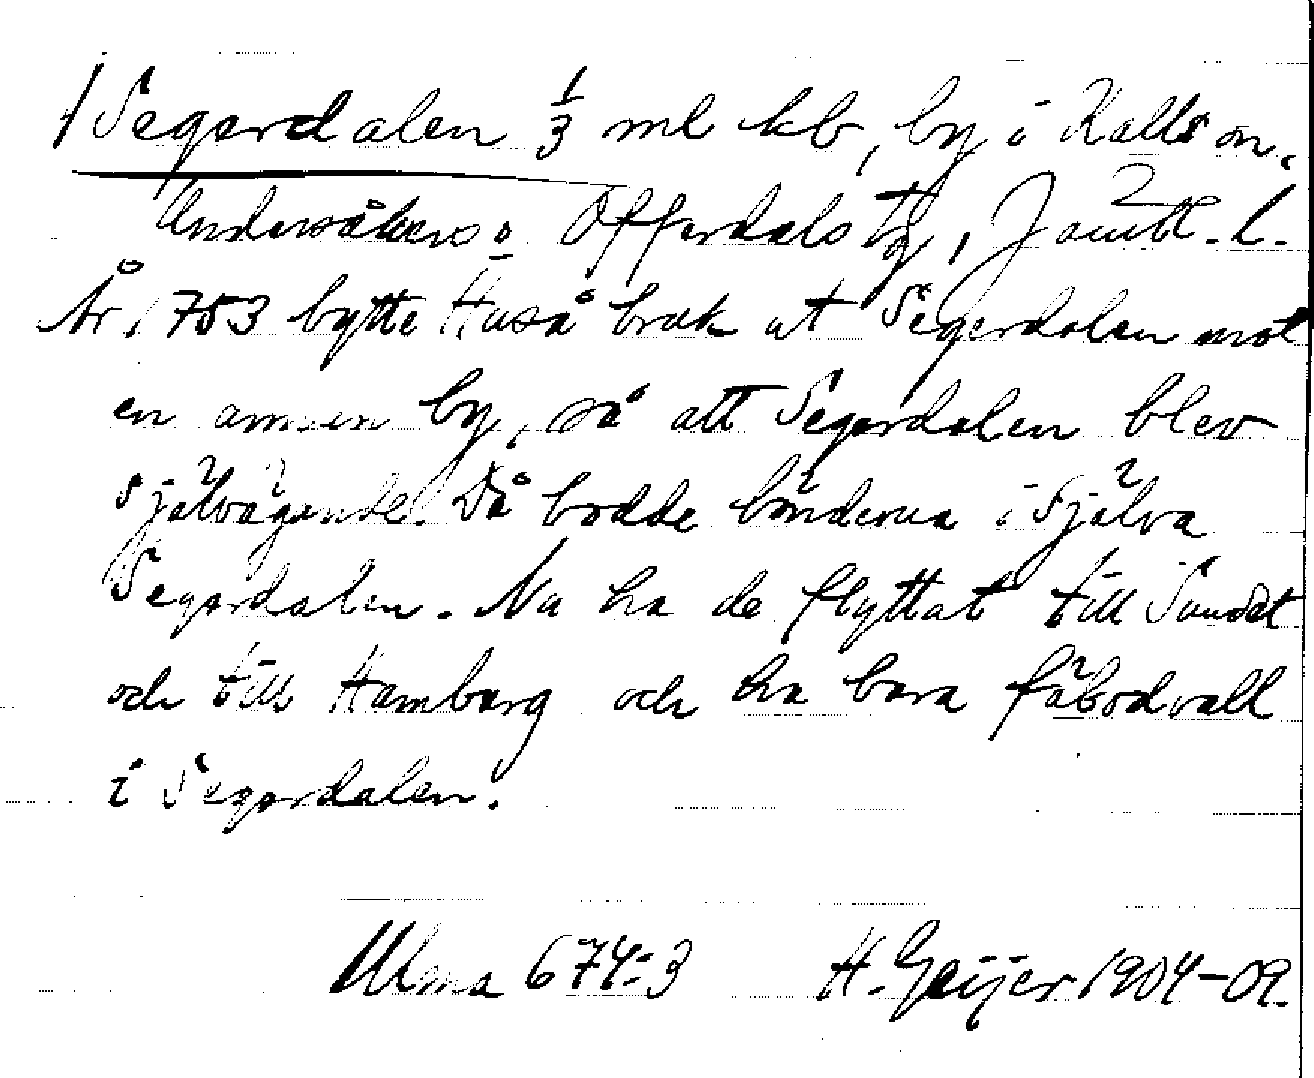 /Segerdalen 1/3 ml kb, by i Kalls sn.
Undersåkers o Offerdals tg, Jämtl. l.
År 1753 bytte Huså bruk ut Segerdalen mot
en annan by, så att Segerdalen blev
självägande. Då bodde bönderna i själva
Segerdalen. Nu ha de flyttat till Sundet
och till Hamborg och ha bara fäbodvall
i Segerdalen.
Ulma 674:3 H. Geijer 1904-09.